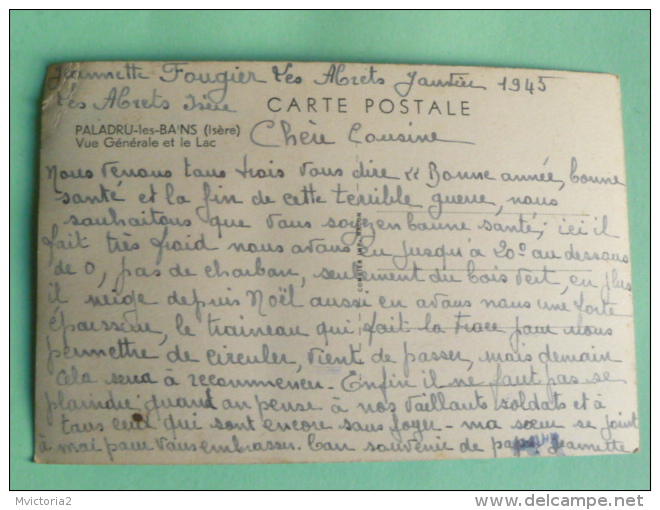 Jeannette Fougier Les Abrets Janvier 1945
Les Abrets Isère
CARTE POSTALE
PALADRU-les-BAINS (Isère)
Vue Générale et le Lac
Chère Cousine
Nous venons tous trois vous dire « Bonne année, bonne
santé et la fin de cette terrible guerre, nous
souhaitons que vous soyez en bonne santé; ici il
fait très froid nous avons eu jusqu'à 20° au dessous
de 0, pas de charbon, seulement du bois vert, en plus
il neige depuis Noël aussi en avons nous une forte
épaisseur, le traineau qui fait la trace pour nous
permettre de circuler, vient de passer, mais demain
cela sera à recommencer. Enfin il ne faut pas se
plaindre quand on pense à nos vaillants soldats et à
tous ceux qui sont encore sans foyer - ma sœur se joint
à moi pour vous embrasser. Bon souvenir de papa Jeannette
Mvictoria2
delcampe.net